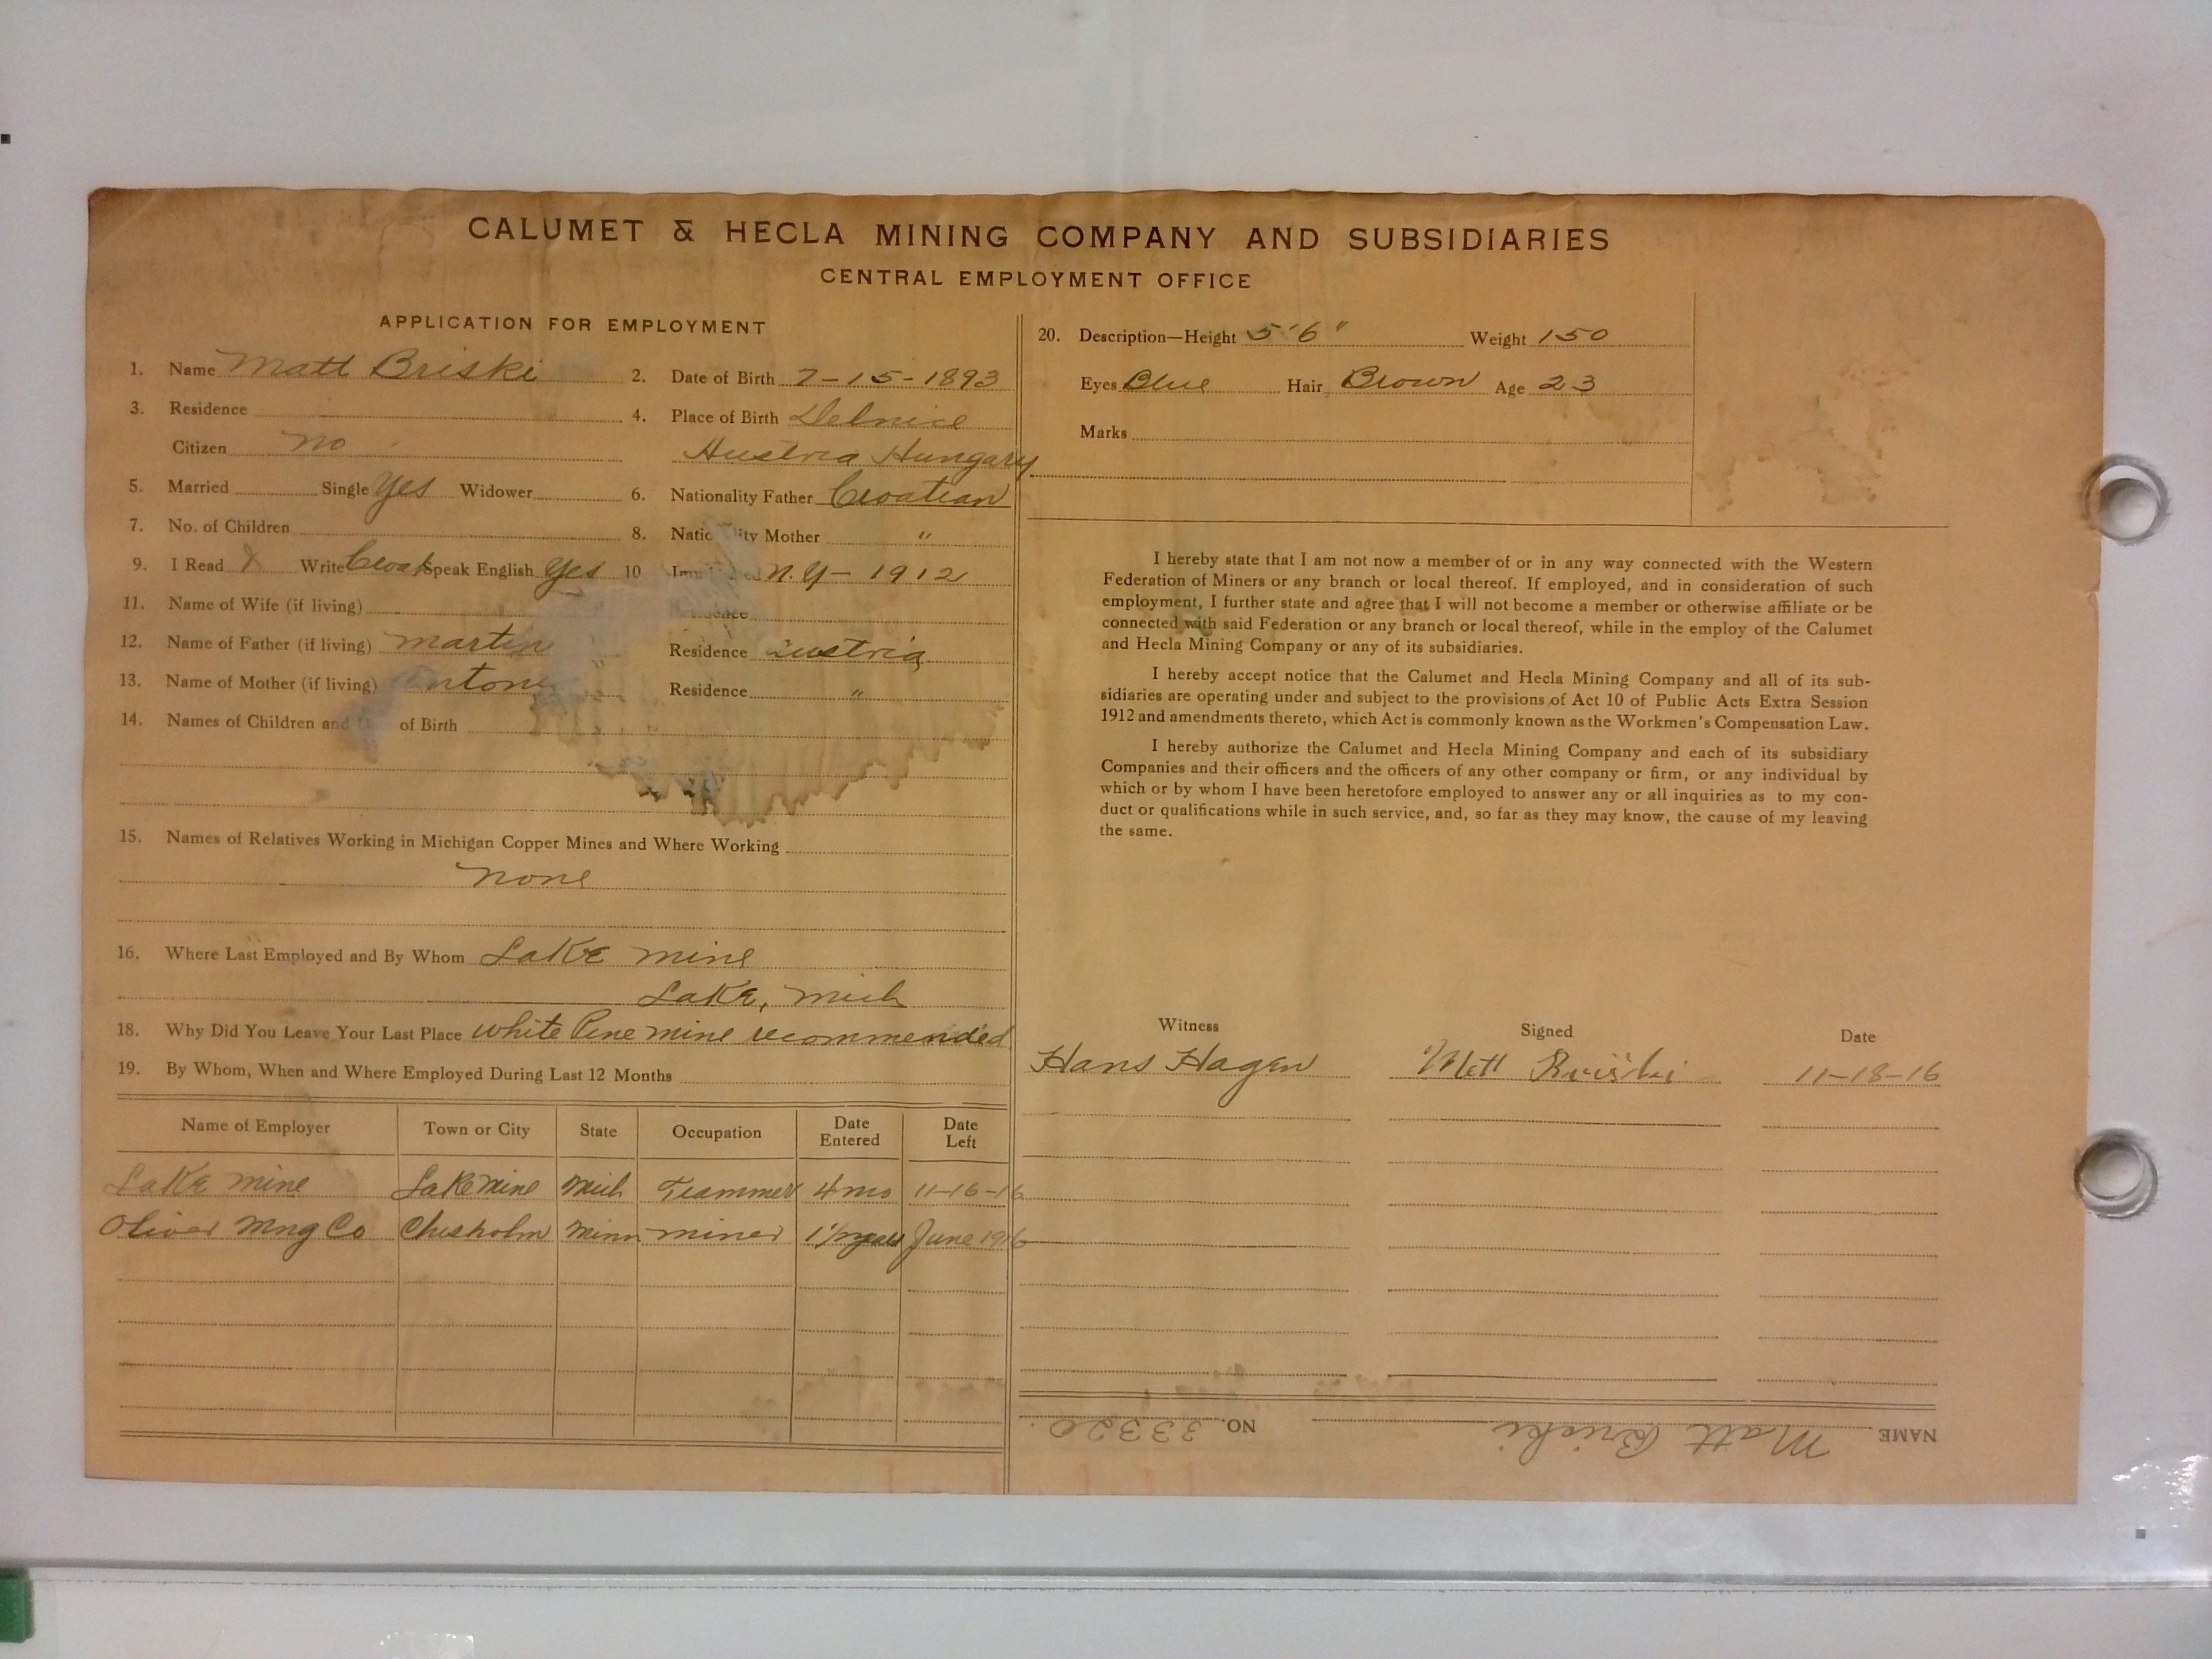 CALUMET & HECLA MINING COMPANY AND SUBSIDIARIES
CENTRAL EMPLOYMENT OFFICE
APPLICATION FOR EMPLOYMENT
1. Name Matt Briski 2. Date of Birth 7-15-1893
3. Residence 4. Place of Birth Delnice
Citizen no Austria Hungary
5. Married Single Yes Widower 6. Nationality Father Croatian
7. No. of Children 8. Mother "
9. I Read X Write Croat Speak English Yes 10 N.Y- 1912
11. Name of Wife (if living)
12. Name of Father (if living) Martin Residence Austria
13. Name of Mother (if living) Residence "
14. Names of Children and of Birth
15. Names of Relatives Working in Michigan Copper Mines and Where Working
none
16. Where Last Employed and By Whom Lake mine
Lake, Mich
18. Why Did You Leave Your Last Place White Pine mine recommended
19. By Whom, When and Where Employed During Last 12 Months
Name of Employer Town or City State Occupation Date Entered Date Left
Lake mine Lake mine Mich Trammer 4 mo 11-16-16
Oliver Mng Co Chisholm Minn miner 1 1/2 years June 1916
20. Description—Height 5'6" Weight 150
Eyes Blue Hair Brown Age 23
Marks
I hereby state that I am not now a member of or in any way connected with the Western
Federation of Miners or any branch or local thereof. If employed, and in consideration of such
employment, I further state and agree that I will not become a member or otherwise affiliate or be
connected with said Federation or any branch or local thereof, while in the employ of the Calumet
and Hecla Mining Company or any of its subsidiaries.
I hereby accept notice that the Calumet and Hecla Mining Company and all of its sub-
sidiaries are operating under and subject to the provisions of Act 10 of Public Acts Extra Session
1912 and amendments thereto, which Act is commonly known as the Workmen's Compensation Law.
I hereby authorize the Calumet and Hecla Mining Company and each of its subsidiary
Companies and their officers and the officers of any other company or firm, or any individual by
which or by whom I have been heretofore employed to answer any or all inquiries as to my con-
duct or qualifications while in such service, and, so far as they may know, the cause of my leaving
the same.
Witness Signed Date
Hans Hagen Mett Briški 11-18-16
NAME Matt Briski NO. 33320.